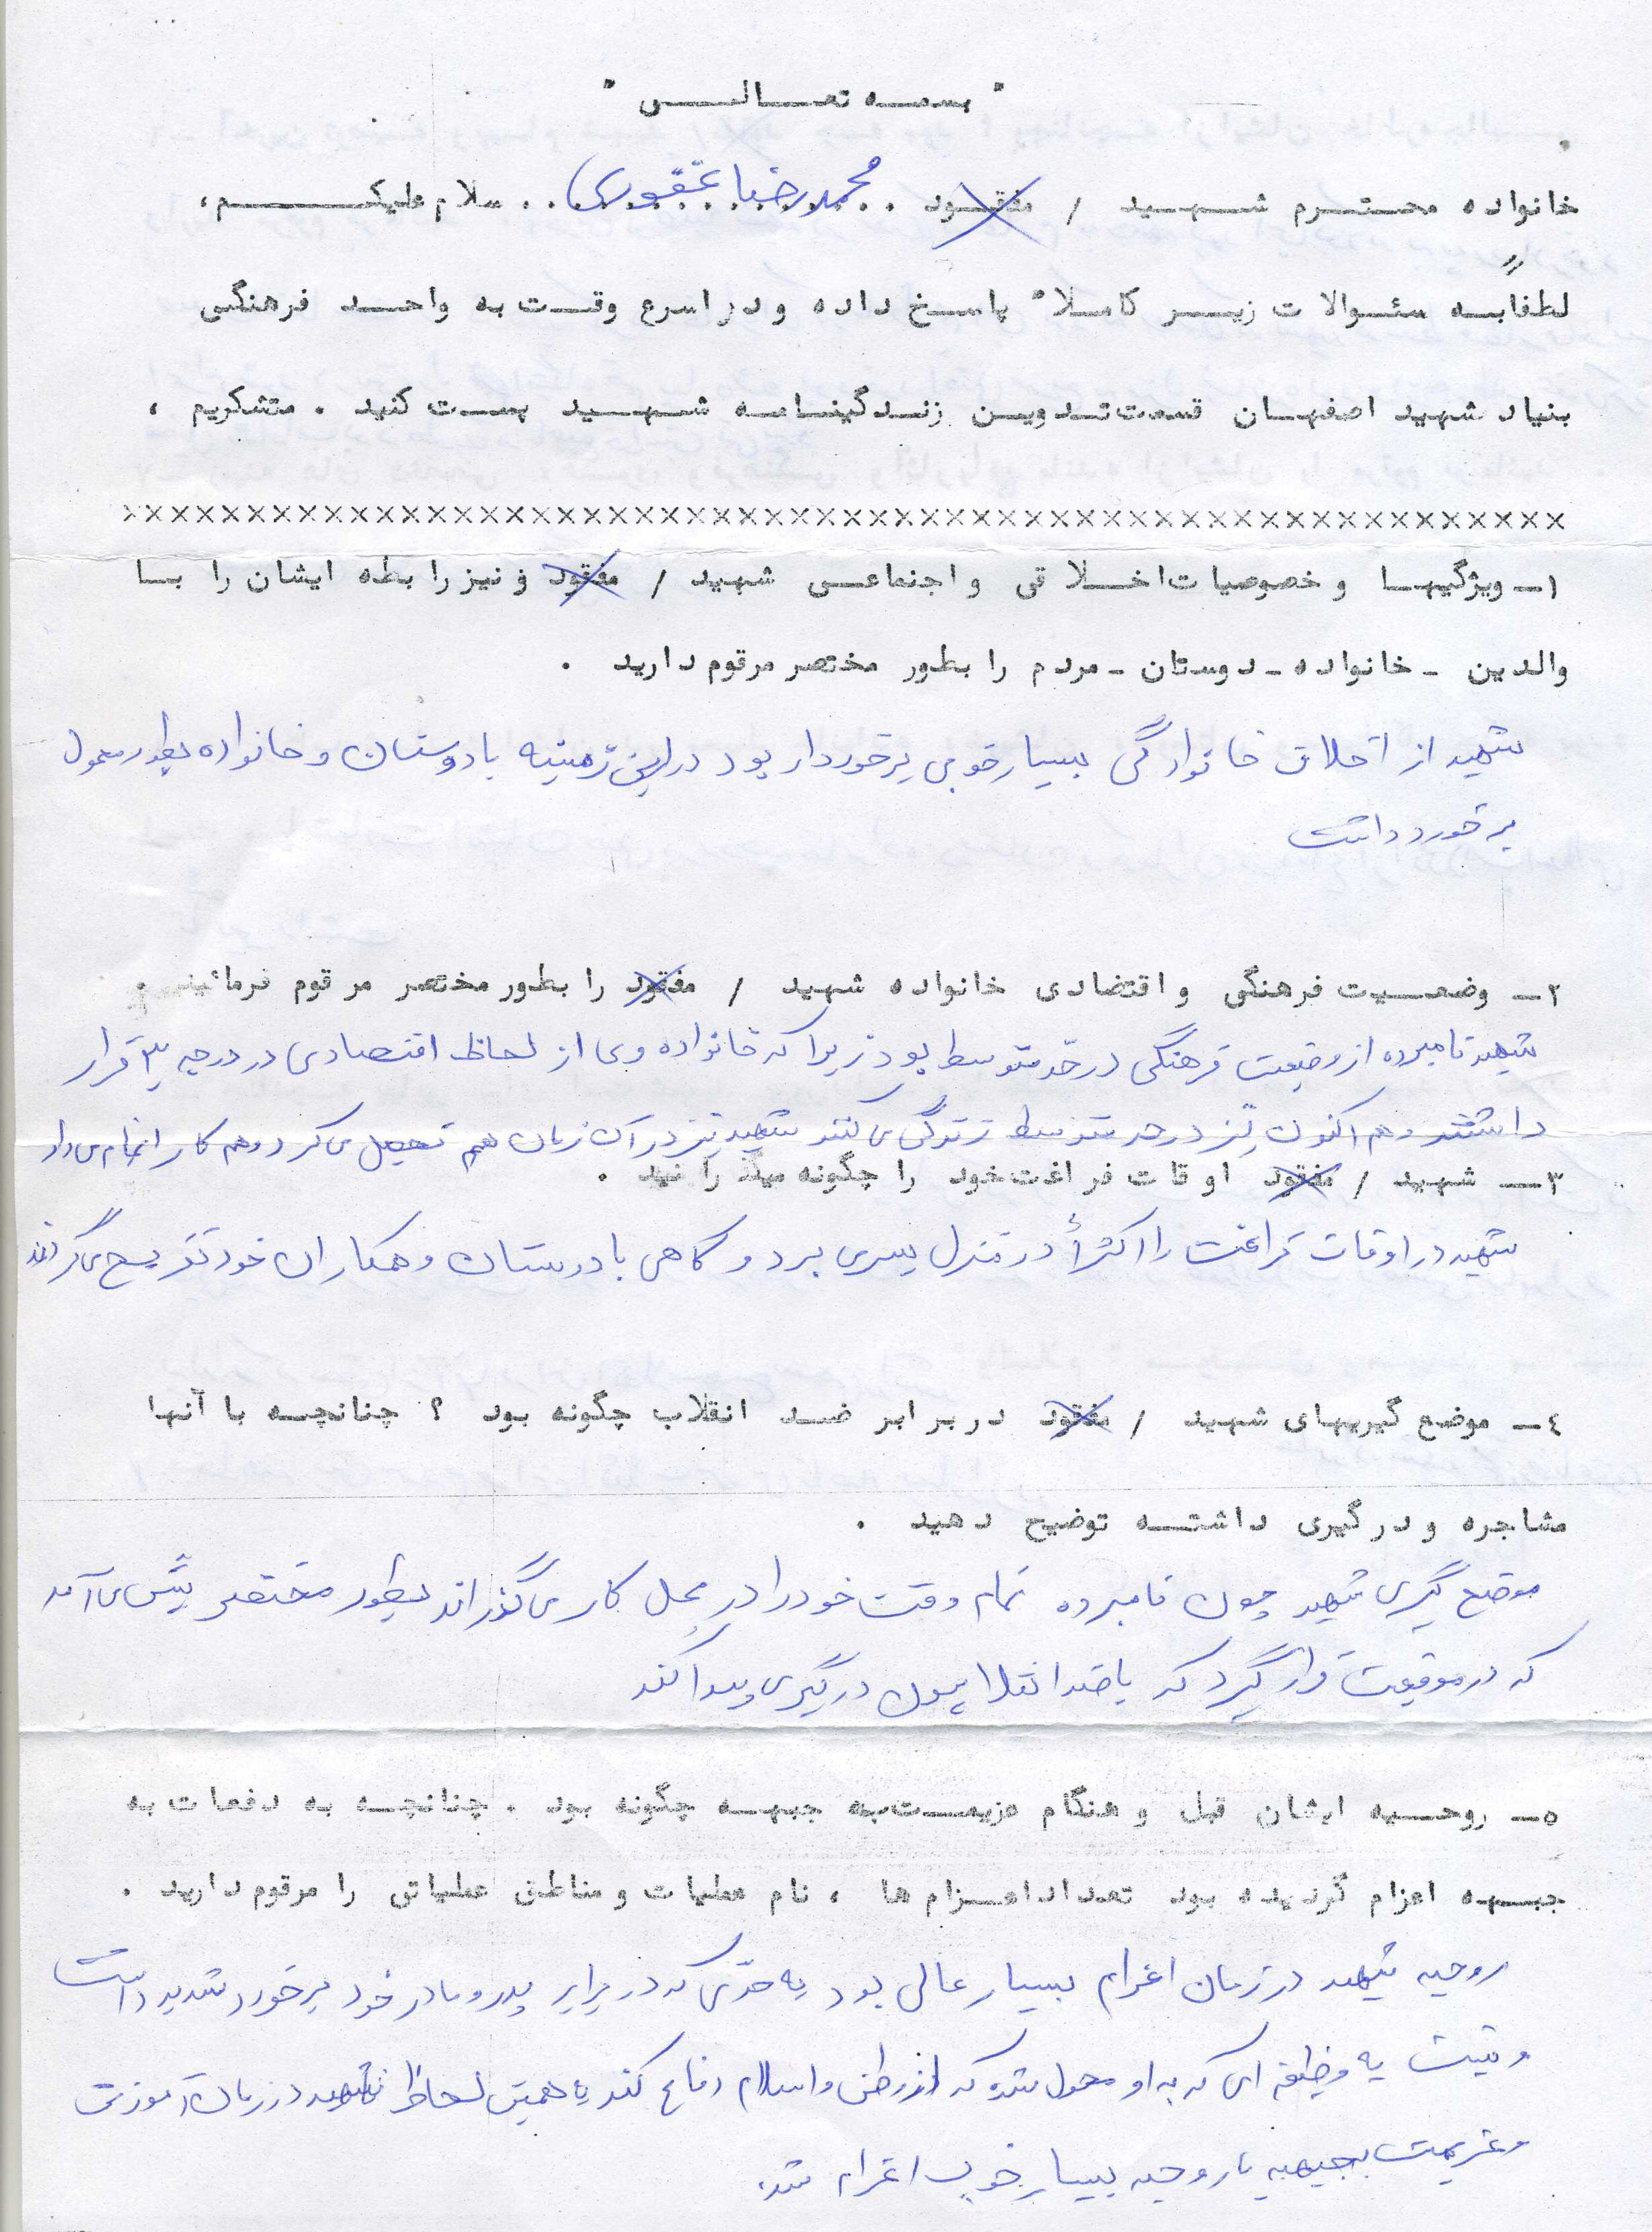 " بسمه تعالی "
خانواده محترم شهید / مفقود . . محمدرضا غفوری . . سلام علیکم ،
لطفاً به سئوالات زیر کاملاً پاسخ داده و در اسرع وقت به واحد فرهنگی
بنیاد شهید اصفهان قسمت تدوین زندگینامه شهید پست کنید . متشکریم ،
××××××××××××××××××××××××××××××××××××××××××××××××××××××××
۱ـ ویژگیها و خصوصیات اخلاقی و اجتماعی شهید / مفقود و نیز رابطه ایشان را با
والدین ـ خانواده ـ دوستان ـ مردم را بطور مختصر مرقوم دارید .
شهید از اخلاق خانوادگی بسیار خوبی برخوردار بود در این زمینه با دوستان و خانواده بطور معمول
برخورد داشت
۲ـ وضعیت فرهنگی و اقتضادی خانواده شهید / مفقود را بطور مختصر مرقوم فرمائید .
شهید نامبرده از وضیعت فرهنگی در حدّ متوسط بود زیرا که خانواده وی از لحاظ اقتصادی در درجه ۳ قرار
داشتند و هم اکنون نیز در حد متوسط زندگی می کنند شهید نیز در آن زمان هم تحصیل می کرد و هم کار انجام می داد
۳ـ شهید / مفقود اوقات فراغت خود را چگونه میگذرانید .
شهید در اوقات فراغت را اکثراً در منزل بسر می برد و گاهی با دوستان و همکاران خود تفریح می گذراند
٤ـ موضع گیریهای شهید / مفقود در برابر ضد انقلاب چگونه بود ؟ چنانچه با آنها
مشاجره و درگیری داشته توضیح دهید .
موضع گیری شهید چون نامبرده تمام وقت خود را در محل کار می گذراند بطور مختصر پیش می آمد
که در موقیعت قرار گیرد که با ضد انقلابیون درگیری پیدا کند
٥ـ روحیه ایشان قبل و هنگام عزیمت به جبهه چگونه بود . چنانچه به دفعات به
جبهه اعزام گردیده بود تعداد اعزام ها ، نام عملیات و مناطق عملیاتی را مرقوم دارید .
روحیه شهید در زمان اغرام بسیار عالی بود به حدّی که در برابر پدر و مادر خود برخورد شدید داشت
و نیست به وظیفه ای که به او محول شده که از وطن و اسلام دفاع کند به همین لحاظ شهید در زمان آموزش
و غریمت بجبهه با روحیه بسیار خوب اغرام شد .